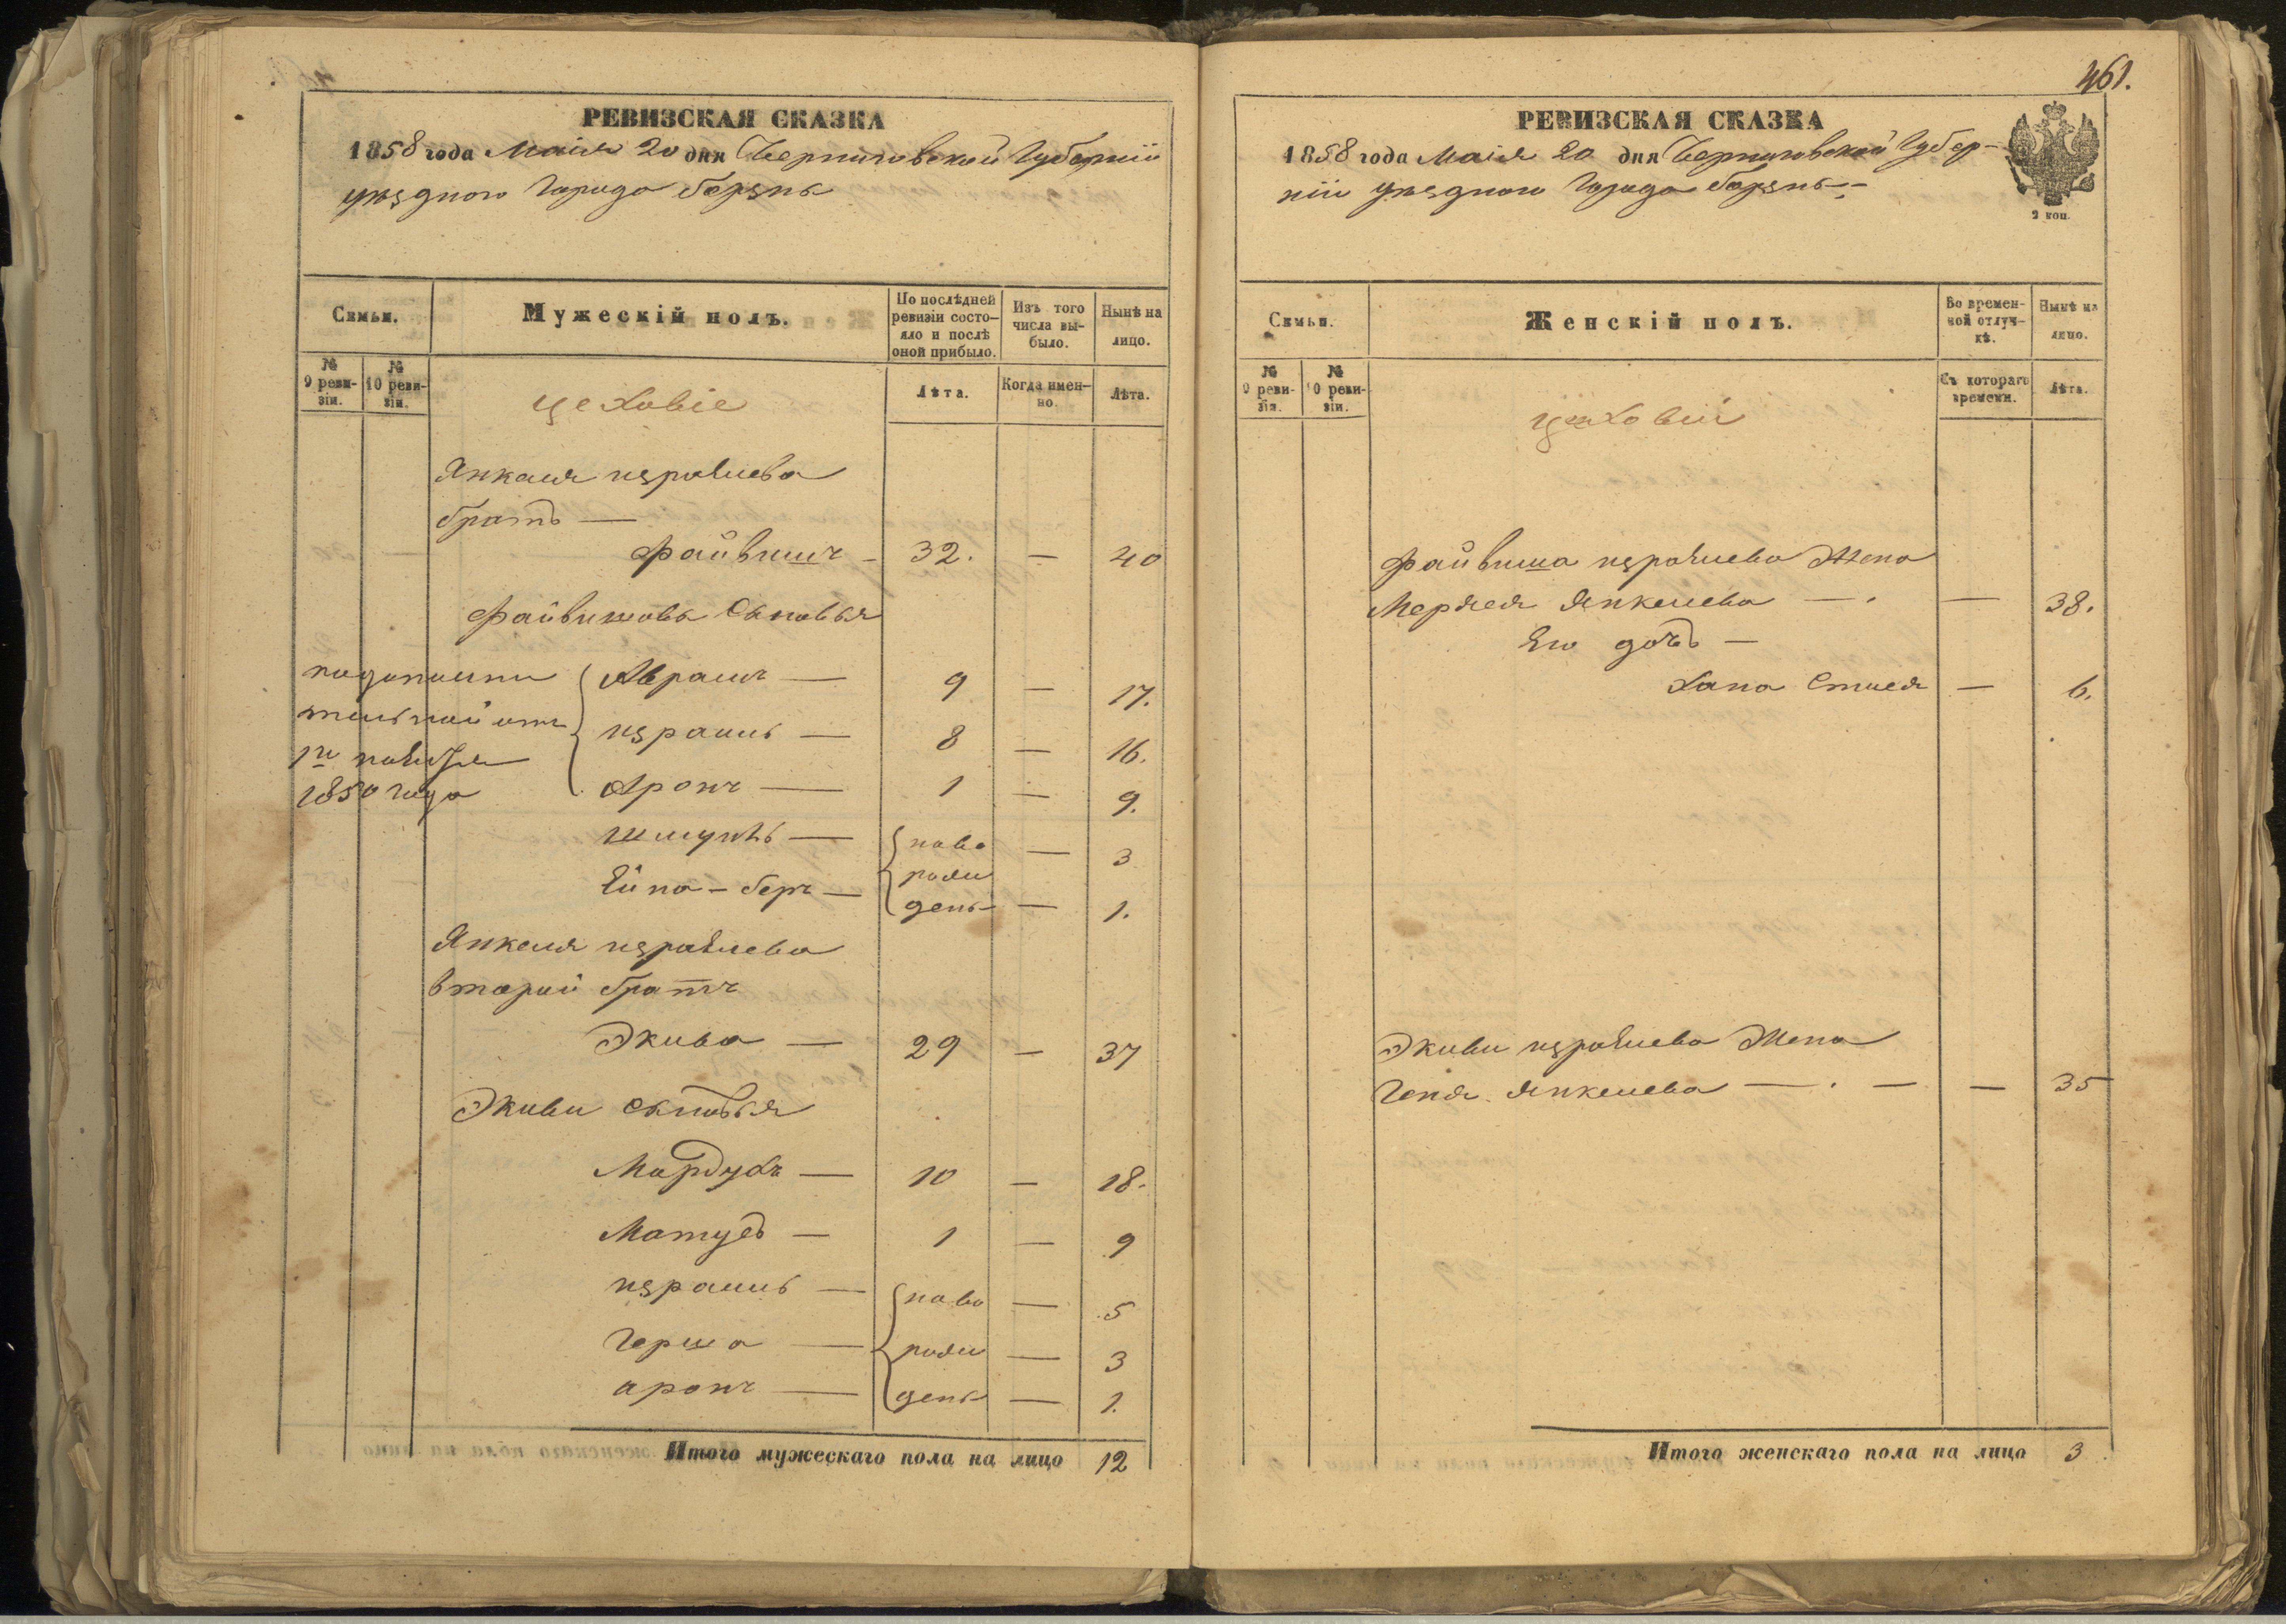 РЕВИЗСКАЯ СКАЗКА
1858 года Маія 20 дня Черниговской Губерніи
уѣзднаго Города Борзны
Семьи.
Мужескій полъ.
По послѣдней ревизіи состояло и послѣ оной прибыло.
Изъ того числа выбыло.
Нынѣ на лицо.
№ 9 ревизіи.
№ 10 ревизіи.
Лѣта.
Когда именно.
Лѣта.
цеховіе
Янкеля израилева
братъ —
Файвишъ - 32. — 40
Файвишовы Сыновья
Абрамъ — 9 — 17.
израиль — 8 — 16.
Аронъ — 1 — 9.
по дополнительной отъ
1го ноября
1850 года
шмуйль — ново — 3
Ейна - беръ — рожденъ — 1.
Янкеля израилева
второй братъ
Экива — 29 — 37
Экиви сыновья
Мордухъ — 10 — 18.
Матусъ — 1 — 9
израиль — ново — 5
герша — рож — 3
аронъ — денъ — 1.
Итого мужескаго пола на лицо 12
461.
РЕВИЗСКАЯ СКАЗКА
1858 года Маія 20 дня Черниговской Губерніи
уѣзднаго Города Борзны-
2 коп.
Семьи.
Женскій полъ.
Во временной отлучкѣ.
Нынѣ на лицо.
№ 9 ревизіи.
№ 10 ревизіи.
Съ котораго времени.
Лѣта.
цеховіи
Файвиша израилева Жена
Янкелева — . — 38.
Его дочь —
Хана — 6.
Экиви израилева Жена
Геня Янкелева — . — — 35
Итого женскаго пола на лицо 3